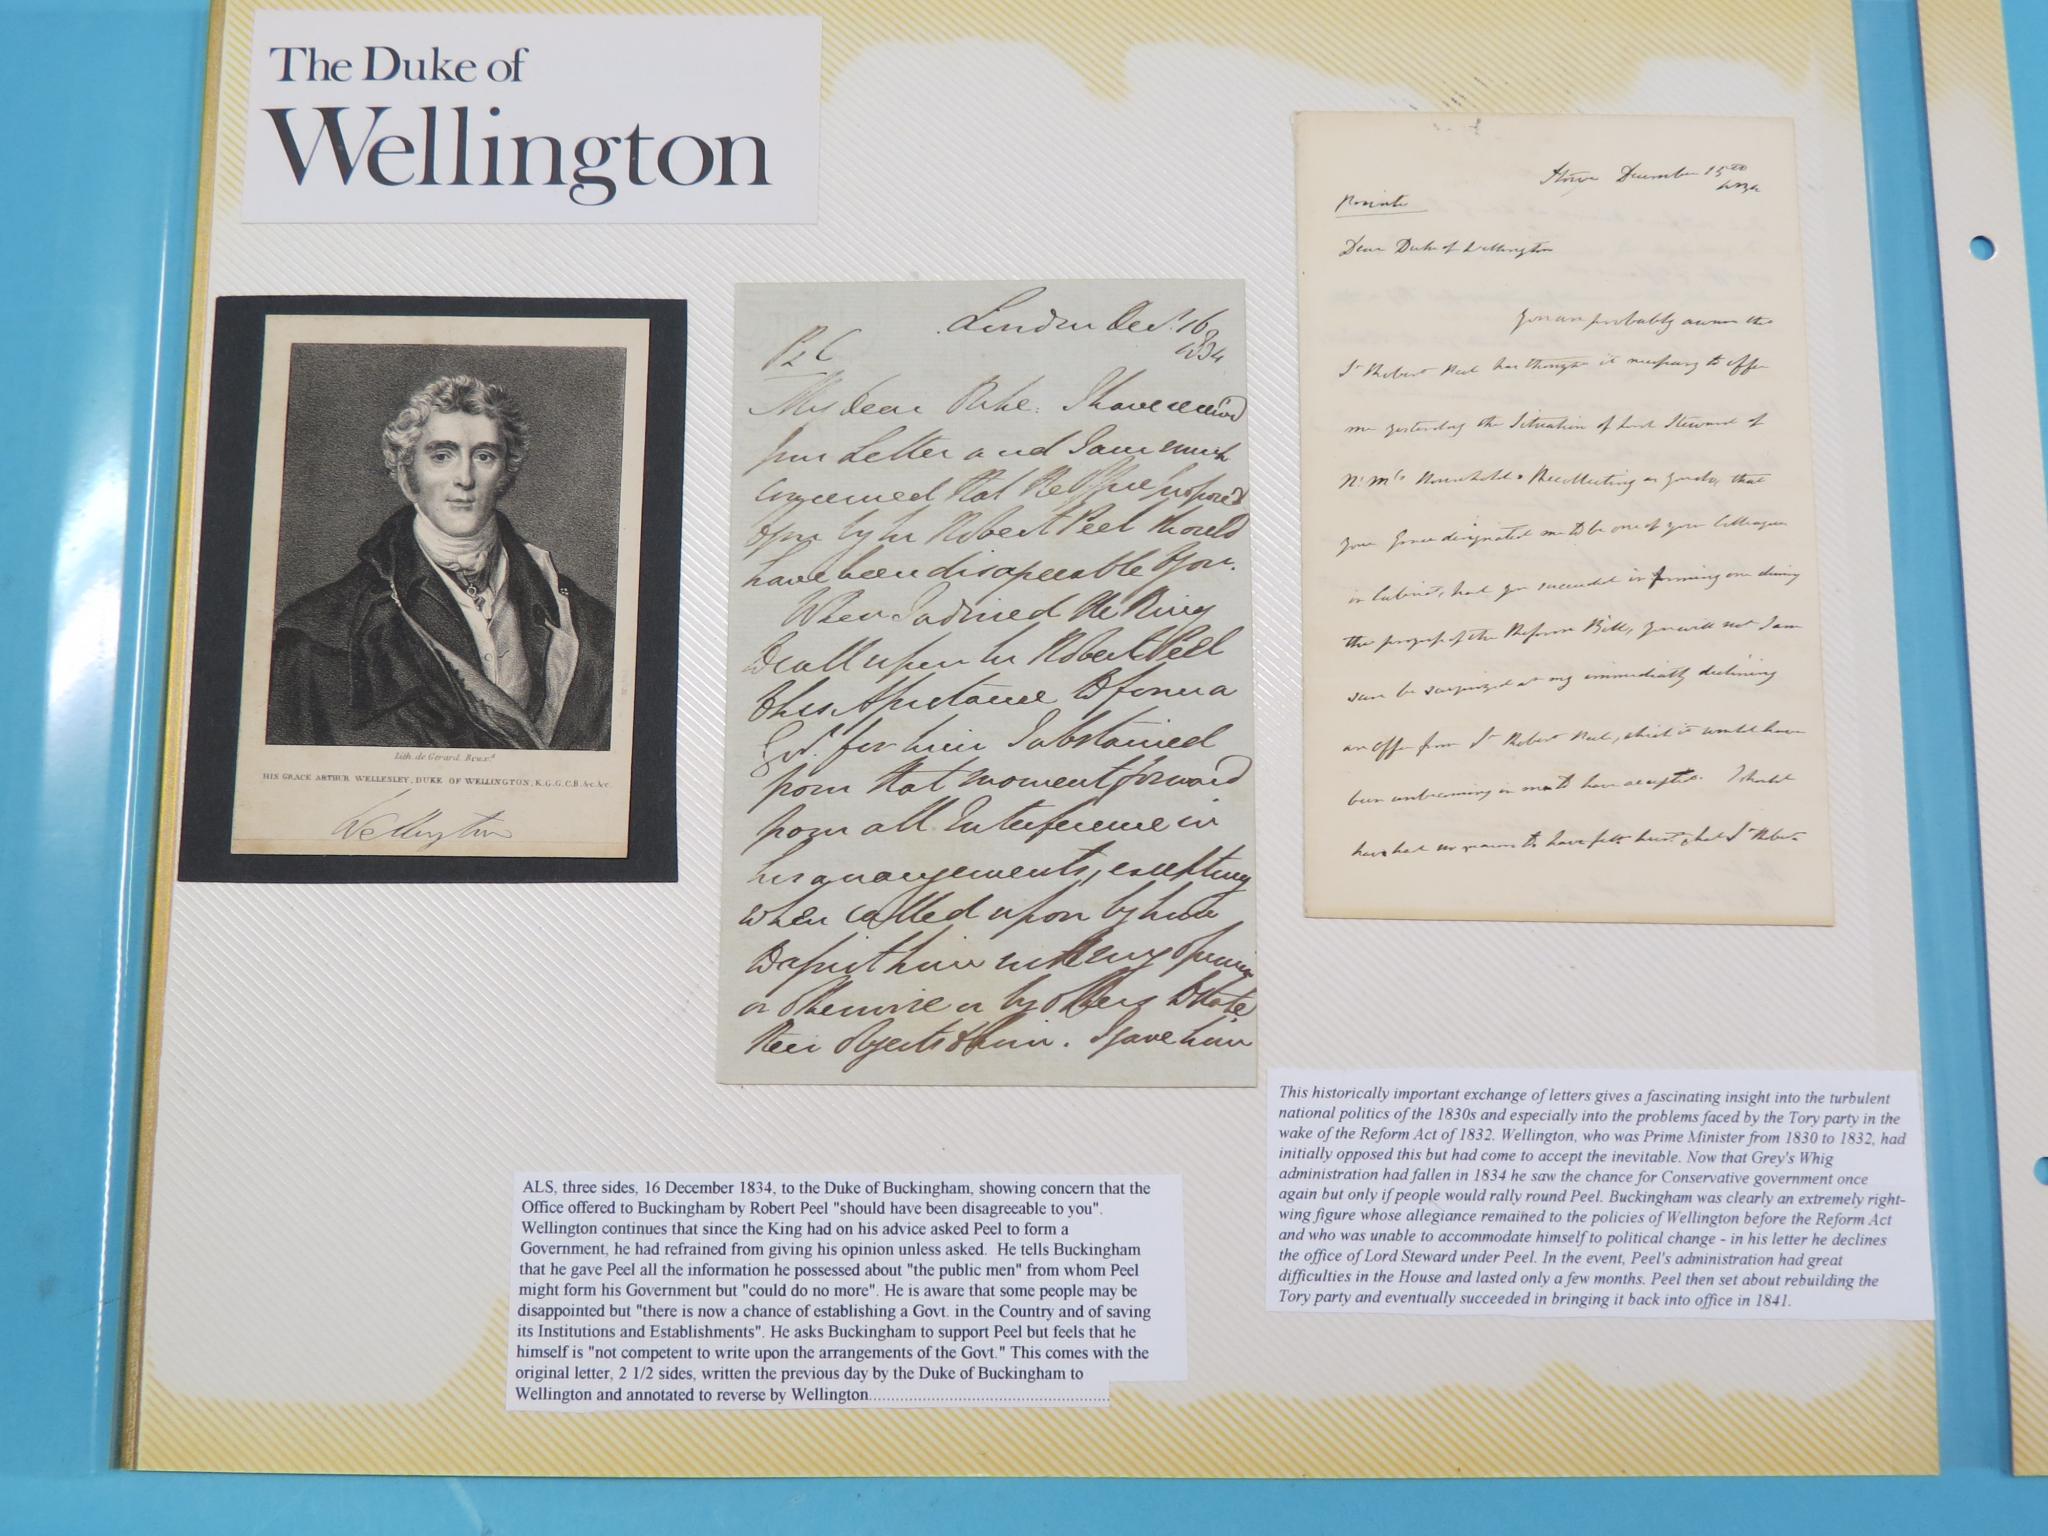 The Duke of
Wellington
Lith. de Gerard. Brux.s
HIS GRACE ARTHUR WELLESLEY, DUKE OF WELLINGTON, K.G.G.C.B. &c. &c.
Wellington
London Dec.r 16
1834
My dear Duke. I have received
your Letter and I am much
concerned that the Office proposed
to you by Sir Robert Peel should
have been disagreeable to you.
When I advised the King
to call upon Sir Robert Peel
to form a
Gov.t for him I abstained
from that moment forward
from all Interference in
his arrangements, excepting
when called upon by him
to assist him with my opinion
or otherwise or by others to state
their objects to him. I gave him
Stowe December 15th
1834
Private
Dear Duke of Wellington
You are probably aware that
Sr Robert Peel has thought it necessary to offer
me yesterday the Situation of Lord Steward of
H. M's Household. Recollecting as you do, that
your Grace designated me to be one of your Colleagues
in Cabinet, had you succeeded in forming one during
the progress of the Reform Bill, you will not I am
sure be surprized at my immediately declining
an offer from Sr Robert Peel, which it would have
been unbecoming in me to have accepted. I should
have had no reason to have felt hurt, had Sr Robert
ALS, three sides, 16 December 1834, to the Duke of Buckingham, showing concern that the
Office offered to Buckingham by Robert Peel "should have been disagreeable to you".
Wellington continues that since the King had on his advice asked Peel to form a
Government, he had refrained from giving his opinion unless asked. He tells Buckingham
that he gave Peel all the information he possessed about "the public men" from whom Peel
might form his Government but "could do no more". He is aware that some people may be
disappointed but "there is now a chance of establishing a Govt. in the Country and of saving
its Institutions and Establishments". He asks Buckingham to support Peel but feels that he
himself is "not competent to write upon the arrangements of the Govt." This comes with the
original letter, 2 1/2 sides, written the previous day by the Duke of Buckingham to
Wellington and annotated to reverse by Wellington............................................................
This historically important exchange of letters gives a fascinating insight into the turbulent
national politics of the 1830s and especially into the problems faced by the Tory party in the
wake of the Reform Act of 1832. Wellington, who was Prime Minister from 1830 to 1832, had
initially opposed this but had come to accept the inevitable. Now that Grey's Whig
administration had fallen in 1834 he saw the chance for Conservative government once
again but only if people would rally round Peel. Buckingham was clearly an extremely right-
wing figure whose allegiance remained to the policies of Wellington before the Reform Act
and who was unable to accommodate himself to political change - in his letter he declines
the office of Lord Steward under Peel. In the event, Peel's administration had great
difficulties in the House and lasted only a few months. Peel then set about rebuilding the
Tory party and eventually succeeded in bringing it back into office in 1841.